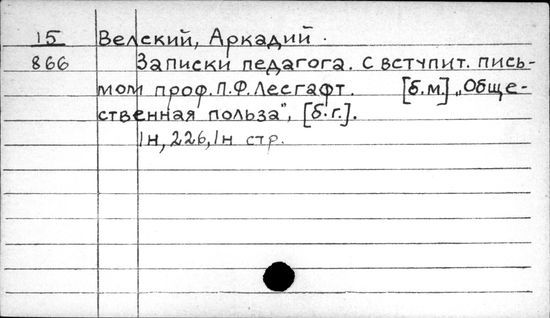 15 Велский, Аркадий.
866 Записки педагога. С вступит. пись-
мом проф. П.Ф. Лесгафт. [б.м.] „Обще-
ственная польза", [б.г.].
1н, 226, 1н стр.